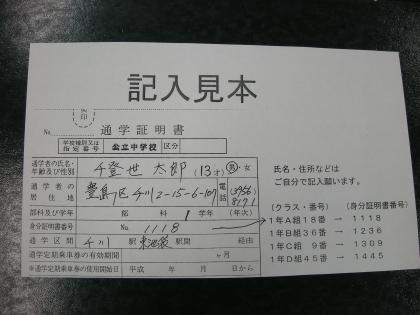 記入見本
No.
通学証明書
学校種別又は
指定番号
公立中学校
区分
通学者の氏名・
年齢及び性別
千登世 太郎 (13才) 男・女
通学者の
居住地
豊島区千川2-15-6-107
電話
(3956)
8171
部科及び学年
部 科 1 学年 (年次)
身分証明書番号
No. 1118
通学区間
千川 駅 東池袋 駅間 経由
通学定期乗車券の有効期間
ヶ月
※通学定期乗車券の使用開始日
平成 年 月 日から
氏名・住所などは
ご自分で記入願います。
(クラス・番号) (身分証明書番号)
1年A組18番 → 1118
1年B組36番 → 1236
1年C組 9番 → 1309
1年D組45番 → 1445